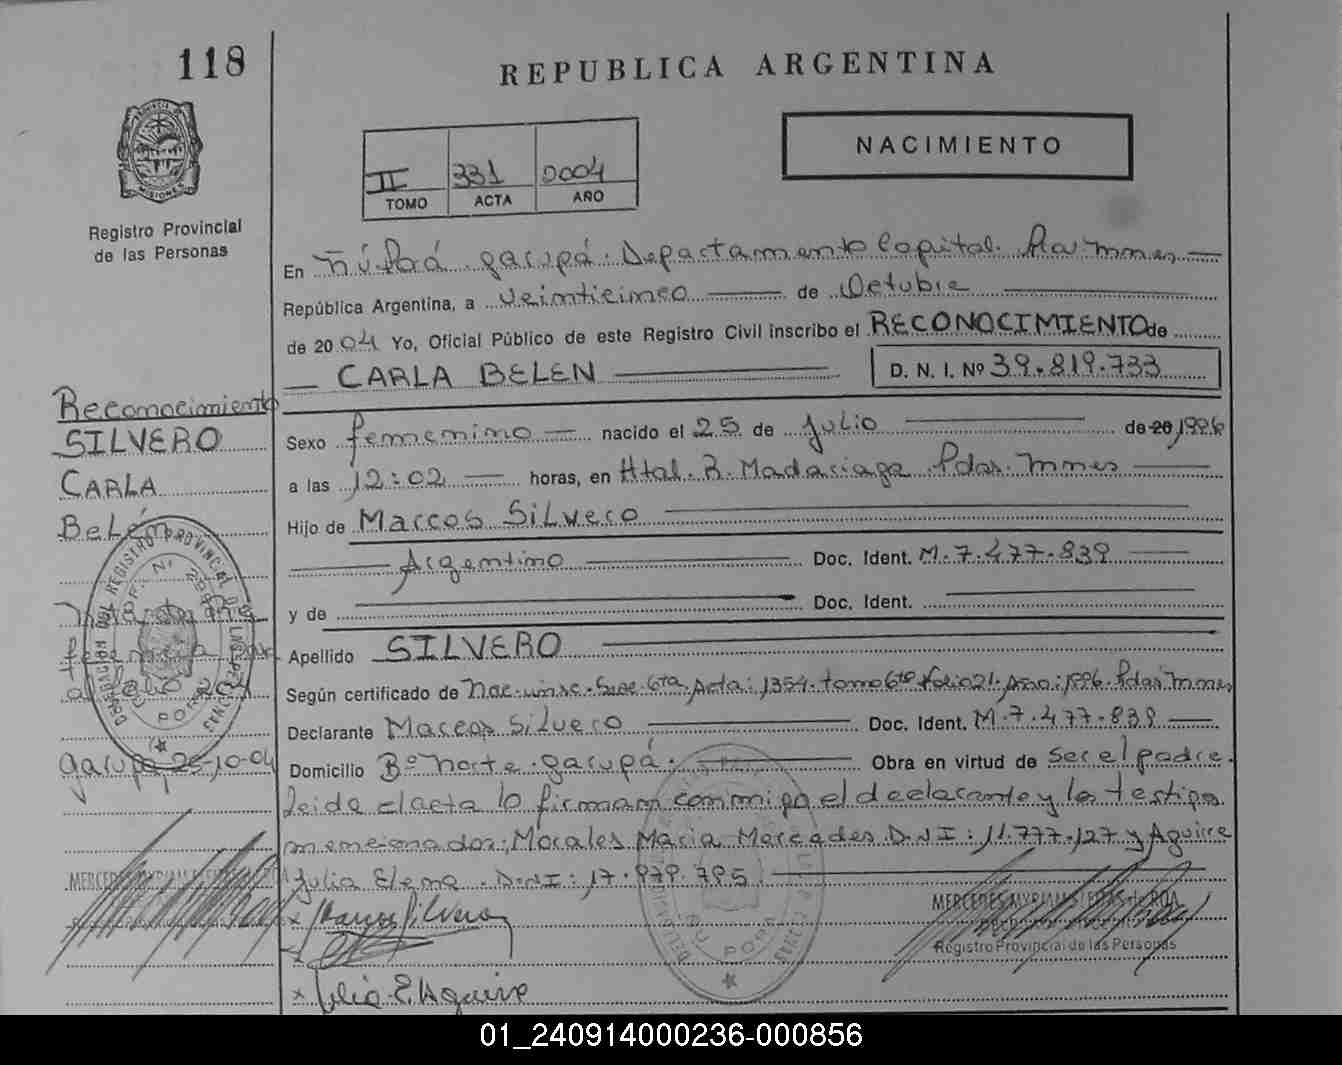 118
REPUBLICA ARGENTINA
NACIMIENTO
II 331 2004
TOMO ACTA AÑO
PROVINCIA DE MISIONES
Registro Provincial
de las Personas
En Ñu Porá garupá. Departamento Capital.
República Argentina, a veinticinco de Octubre
de 2004 Yo, Oficial Público de este Registro Civil inscribo el RECONOCIMIENTO de
CARLA BELEN D. N. I. Nº 39.819.733
Reconocimiento
SILVERO
CARLA
Belén
Sexo femenino nacido el 25 de Julio de 20 1996
a las 12:02 horas, en Htal. R. Madariaga Pdas. Mnes
Hijo de Marcos Silvero
Argentino Doc. Ident. M.7.477.839
y de Doc. Ident.
Apellido SILVERO
Según certificado de Nac. Secc. 6ta Acta: 1354. tomo 6to folio 21. Año: 1996. Pdas Mnes
Declarante Marcos Silvero Doc. Ident. M.7.477.839
Domicilio Bº Norte. garupá. Obra en virtud de ser el padre.
leida el acta lo firman conmigo el declarante y los testigos
mencionados: Morales Maria Mercedes D.N.I: 11.777.127 y Aguirre
Julia Elena. D.N.I: 17.979.795
garupá 25-10-04
x Marcos Silvero
x Julia E. Aguirre
MERCEDES MYRIAM
MERCEDES MYRIAM de ROA
Registro Provincial de las Personas
01_240914000236-000856